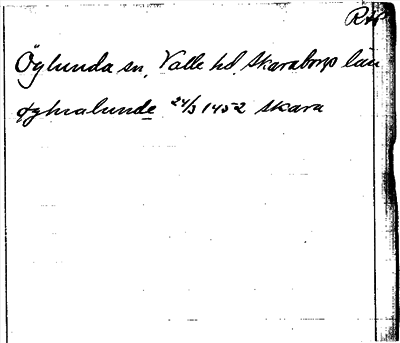 RAP
Öglunda sn, Valle hd, Skaraborgs län
øghnalunde 24/3 1452 Skara